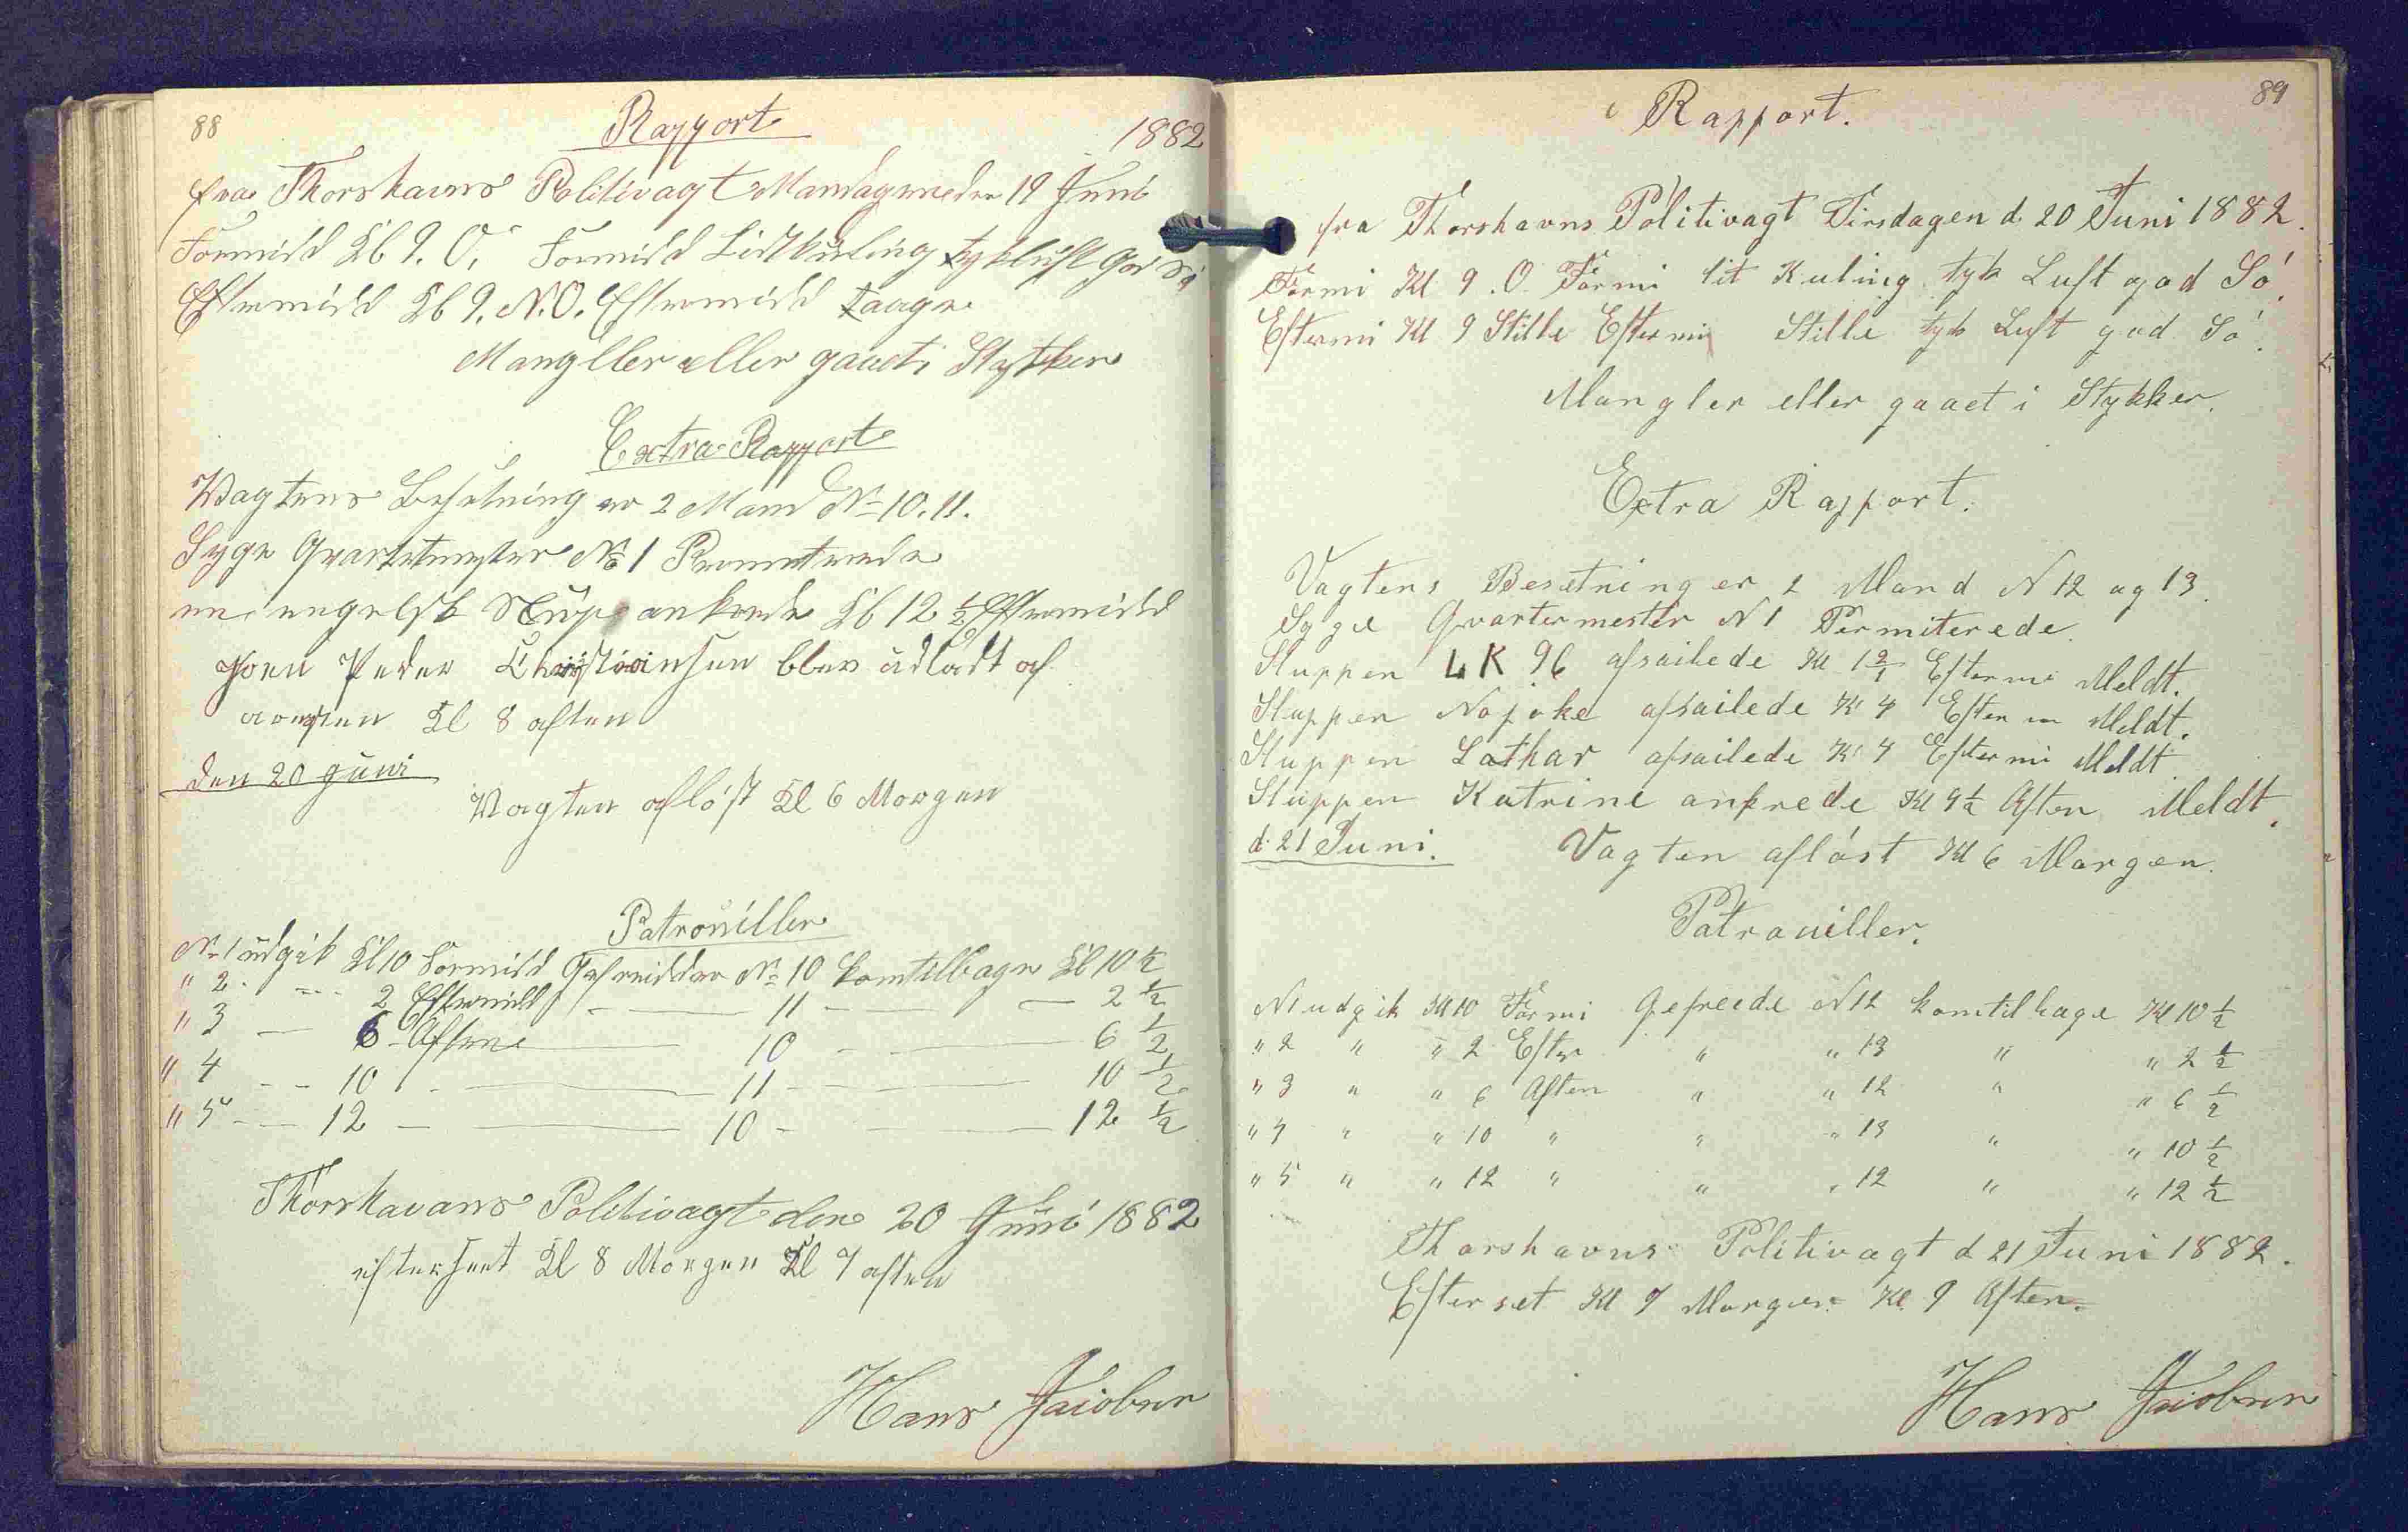 88
Rapport
1882
fra Thorshavns Politivagt Mandagen den 19 Juni
Formidd Kl 9. O. Formidd Lidt Kuling tyk luft God Sö
Eftermidd Kl 9. N.O. Eftermidd Taage
Mangller eller gaaet i Stykker
Extra Rapport
Wagtens Besetning er 2 Mand No 10. 11.
Syge Qvartermester No 1 Permeterede
en engelsk Slup ankrede Kl 12 1/2 Eftermidd
Joen Peder Christiansen blev udladt af
aresten Kl 8 aften
den 20 Juni
Wagten aflöst Kl 6 Morgen
Patrouiller
No 1 udgik Kl 10 Formidd Gefreidder No 10 komtilbage Kl 10 1/2
" 2 - - 2 Eftermidd - - 11 - - 2 1/2
" 3 - 6 Aften - 10 - - 6 1/2
" 4 - - 10 - - 11 - - 10 1/2
" 5 - - 12 - - 10 - - 12 1/2
Thorshavans Politivagt den 20 Juni 1882
efterseet Kl 8 Morgen Kl 7 aften
Hans Jacobsen
89
Rapport.
fra Thorshavns Politivagt Tirsdagen d. 20 Juni 1882.
Formi Kl 9. O. Formi lit Kuling tyk Luft god Sö.
Eftermi Kl 9 Stille Eftermi Stille tyk Luft god Sö.
Mangler eller gaaet i Stykker.
Extra Rapport.
Vagtens Besetning er 2 Mand N 12 og 13.
Syge Qvartermester N 1 Permiterede.
Sluppen LK 96 afsailede Kl 1 2/1 Eftermi Meldt.
Sluppen afsailede Kl 4 Efterm Meldt.
Sluppen Lothar afsailede Kl 4 Eftermi Meldt.
Sluppen Katrine ankrede Kl 9 1/2 Aften Meldt.
d. 21 Juni. Vagten aflöst Kl 6 Morgen.
Patrouiller.
N 1 udgik Kl 10 Formi Gefreede N 12 komtilbage Kl 10 1/2
" 2 " " 2 Efter " " 13 " " 2 1/2
" 3 " " 6 Aften " " 12 " " 6 1/2
" 4 " " 10 " " " 13 " " 10 1/2
" 5 " " 12 " " " 12 " " 12 1/2
Thorshavns Politivagt d 21 Juni 1882.
Efterset Kl 7 Morgen Kl. 9 Aften.
Hans Jacobsen